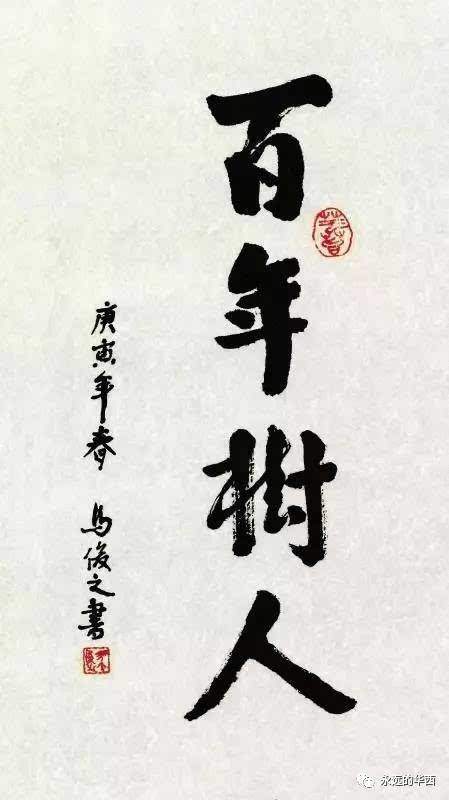 百年樹人
庚寅年春 馬俊之書
永远的华西